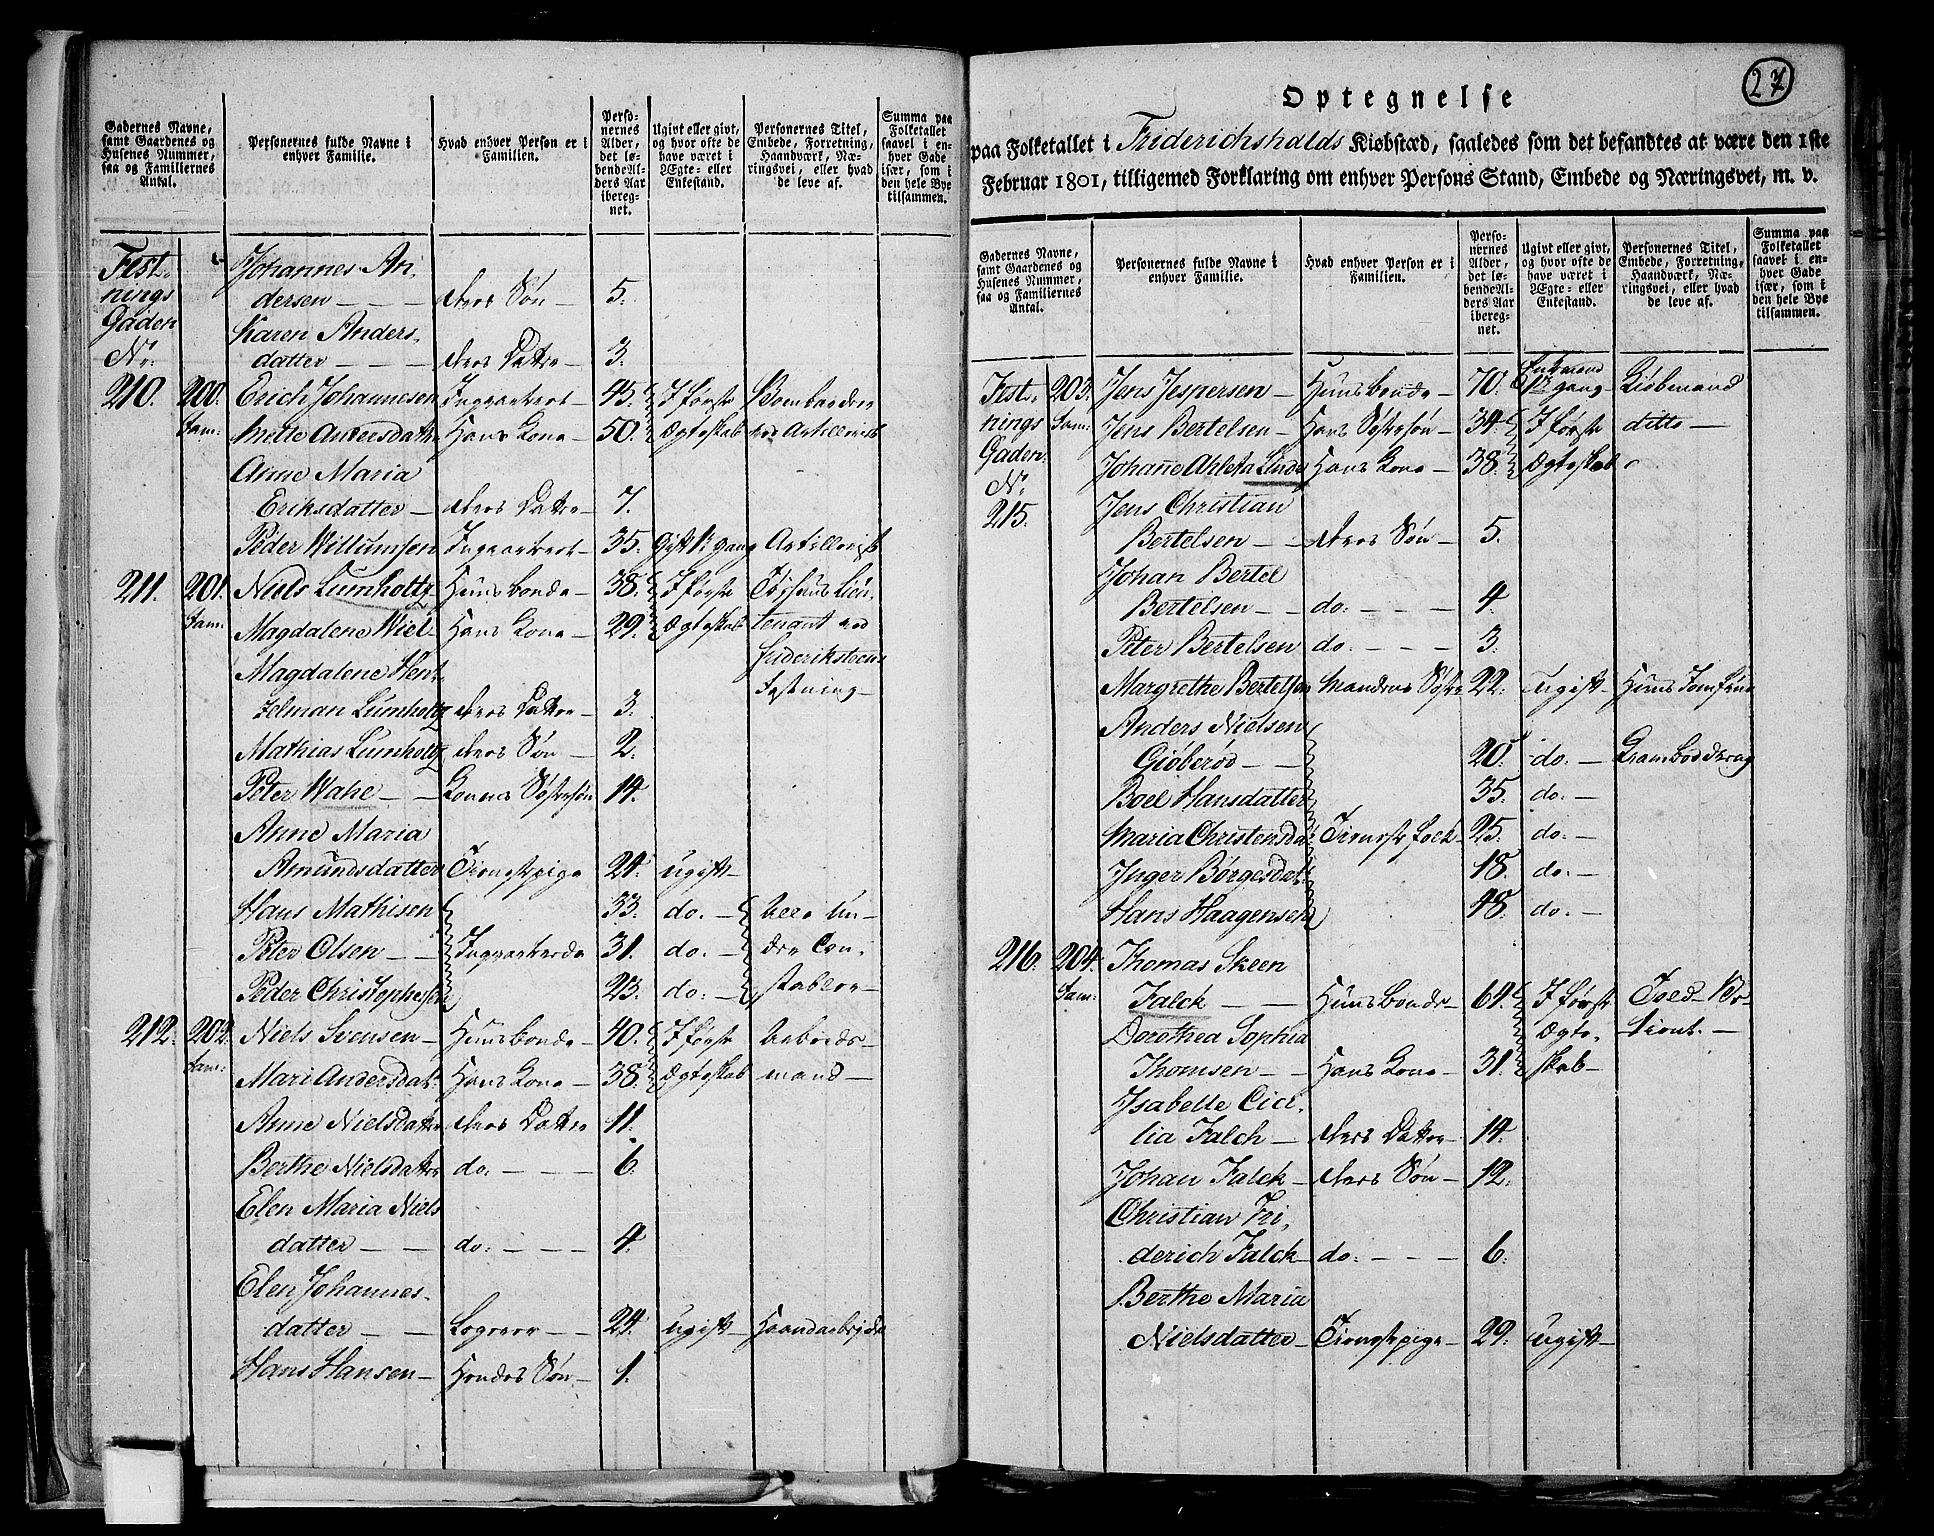 Gadernes Navne, samt Gaardenes og Husenes Nummer, saa og Familiernes Antal.
Personernes fulde Navne i enhver Familie.
Hvad enhver Person er i Familien.
Personernes Alder, det løbende Alders Aar iberegnet.
Ugivt eller givt, og hvor ofte de have været i Ægte- eller Enkestand.
Personernes Titel, Embede, Forretning, Haandværk, Næringsvei, eller hvad de leve af.
Summa paa Folketallet saavel i enhver Gade især, som i den hele Bye tilsammen.
Fest-
nings
Gaden
No.
Johannes An-
dersen — — deres Søn — 5.
Karen Anders-
datter — deres Datter — 3.
210. 200. Erich Johannesen Inqvarteret — 45. I første Bombardeer
Fam: Mette Andersdatr Hans Kone — 50. Ægteskab ved Artilleriet
Anne Maria
Eriksdatter — deres Datter — 7.
Peder Willumsen Inqvarteret — 35. Gift 1 gang Artillerist
211. 201. Niels Lumholtz Huusbonde — 38. I første Tøihuus Lieu-
Fam: Magdalene Wiel Hans Kone — 29. Ægteskab tenant ved
Frideriksteens
Magdalene Hent-
Festning —
zelman Lumholtz deres Datter — 3.
Mathias Lumholtz deres Søn — 2.
Peter Wahe — — Konens Søstersøn 14.
Anne Maria
Amundsdatter Tieneftpige 24. ugift —
Hans Mathisen 33. do. — alle Un-
Peter Olsen — — Inqvarterede 31. do. — dre Con-
Peder Christophersen 23. do. — stabler —
212. 202. Niels Svensen — Huusbonde — 40. I første Arbeids-
Fam: Mari Andersdat: Hans Kone — 38. Ægteskab mand —
Anne Nielsdatter deres Datter 11.
Berthe Nielsdatter do. — — 6.
Elen Maria Niels
datter — — do: — — — 4.
Elen Johannes-
datter — — Logerer — — 24. ugift — Haandarbeide
Hans Hansen — Hendes Søn — 1.
27
Optegnelse
paa Folketallet i Friderichshalds Kiøbstæd, saaledes som det befandtes at være den 1ste
Februar 1801, tilligemed Forklaring om enhver Persons Stand, Embede og Næringsvei, m. v.
Gadernes Navne, samt Gaardenes og Husenes Nummer, saa og Familiernes Antal.
Personernes fulde Navne i enhver Familie.
Hvad enhver Person er i Familien.
Personernes Alder, det løbende Alders Aar iberegnet.
Ugivt eller givt, og hvor ofte de have været i Ægte- eller Enkestand.
Personernes Titel, Embede, Forretning, Haandværk, Næringsvei, eller hvad de leve af.
Summa paa Folketallet saavel i enhver Gade især, som i den hele Bye tilsammen.
Fest-
nings
Gaden
No.
215.
203. Jens Jespersen — Huusbonde — 70. Enkemand 1 gang Kiøbmand
Fam: Jens Bertelsen — Hans Søstersøn — 34. I første ditto —
Johañe Ahleta Linde Hans Kone — 38. Ægteskab
Jens Christian
Bertelsen — — deres Søn — 5.
Johan Bertel
Bertelsen — — do: — — — 4.
Peter Bertelsen do: — — — 3.
Margrethe Bertelsen Mandens Søster 22. ugift — Huus Jomfrue
Anders Nielsen
Giøberød — — 20. do. — Krambod dreng
Boel Hansdatter 35. do: —
Maria Christensda Tieneste Folk — 25. do: —
Inger Børgesdat: 18. do: —
Hans Haagensen 48. do: —
216. 204. Thomas Skeen
Fam: Falck — — Huusbonde — 64. I første Told-
Dorothea Sophia Ægte-
Thomsen — — Hans Kone — 31. skab —
Isabelle Cici-
lia Falch — deres Datter — 14.
Johan Falck — deres Søn — 12.
Christian Fri-
derich Falck — do: — — — 6.
Berthe Maria
Nielsdatter — Tieneftpige — 29. ugift —